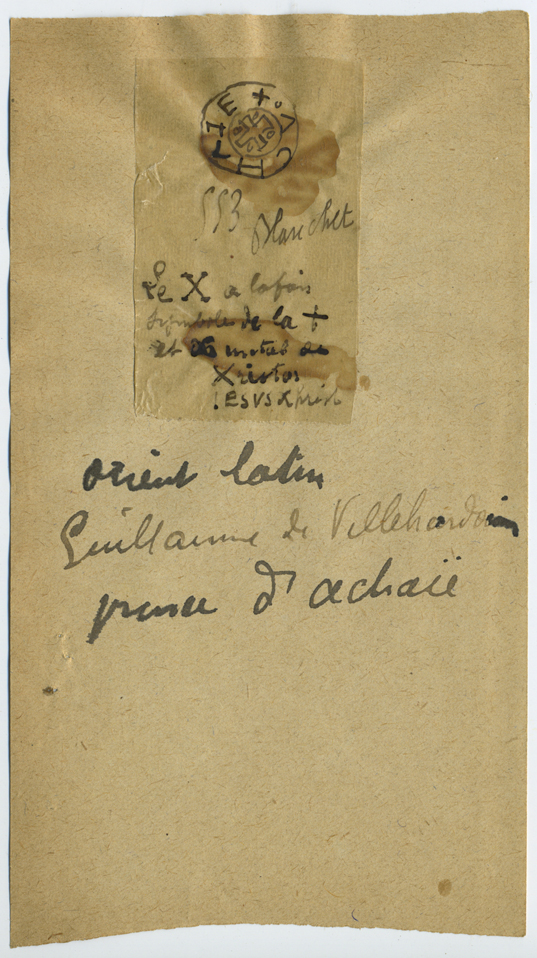 + : ACHAIE
553
Blanchet
Le X a la fois
Symbole de la +
et
Xristos
IESVS Xrist
orient latin
Guillaume de Villehardouin
prince d'achaïe